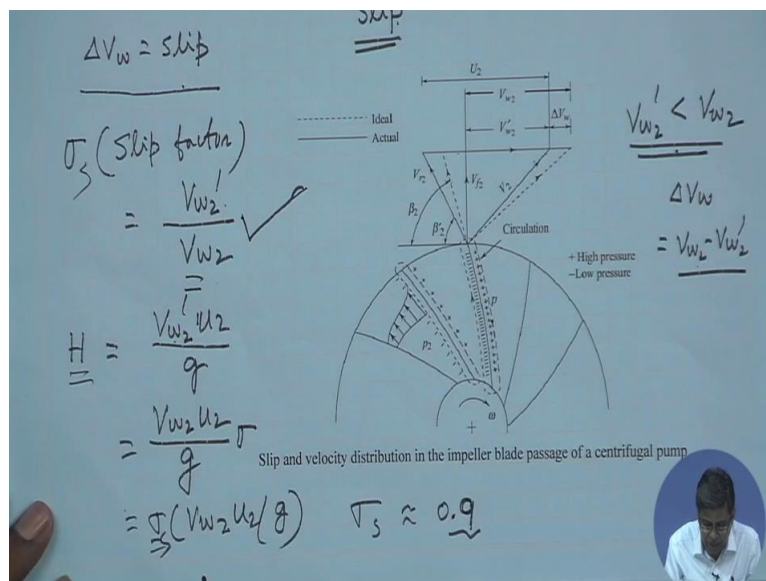 Slip
ΔVw = Slip
σs (Slip factor)
= Vw2' / Vw2
H = Vw2' U2 / g
= Vw2 U2 / g σ
= σs (Vw2 U2/g) σs ≈ 0.9
Ideal
Actual
U2
Vw2
V'w2
ΔVw
Vr2
Vf2
V2
β2
β'2
Circulation
+ High pressure
–Low pressure
p
p2
ω
+
Vw2' < Vw2
ΔVw
= Vw2 - Vw2'
Slip and velocity distribution in the impeller blade passage of a centrifugal pump